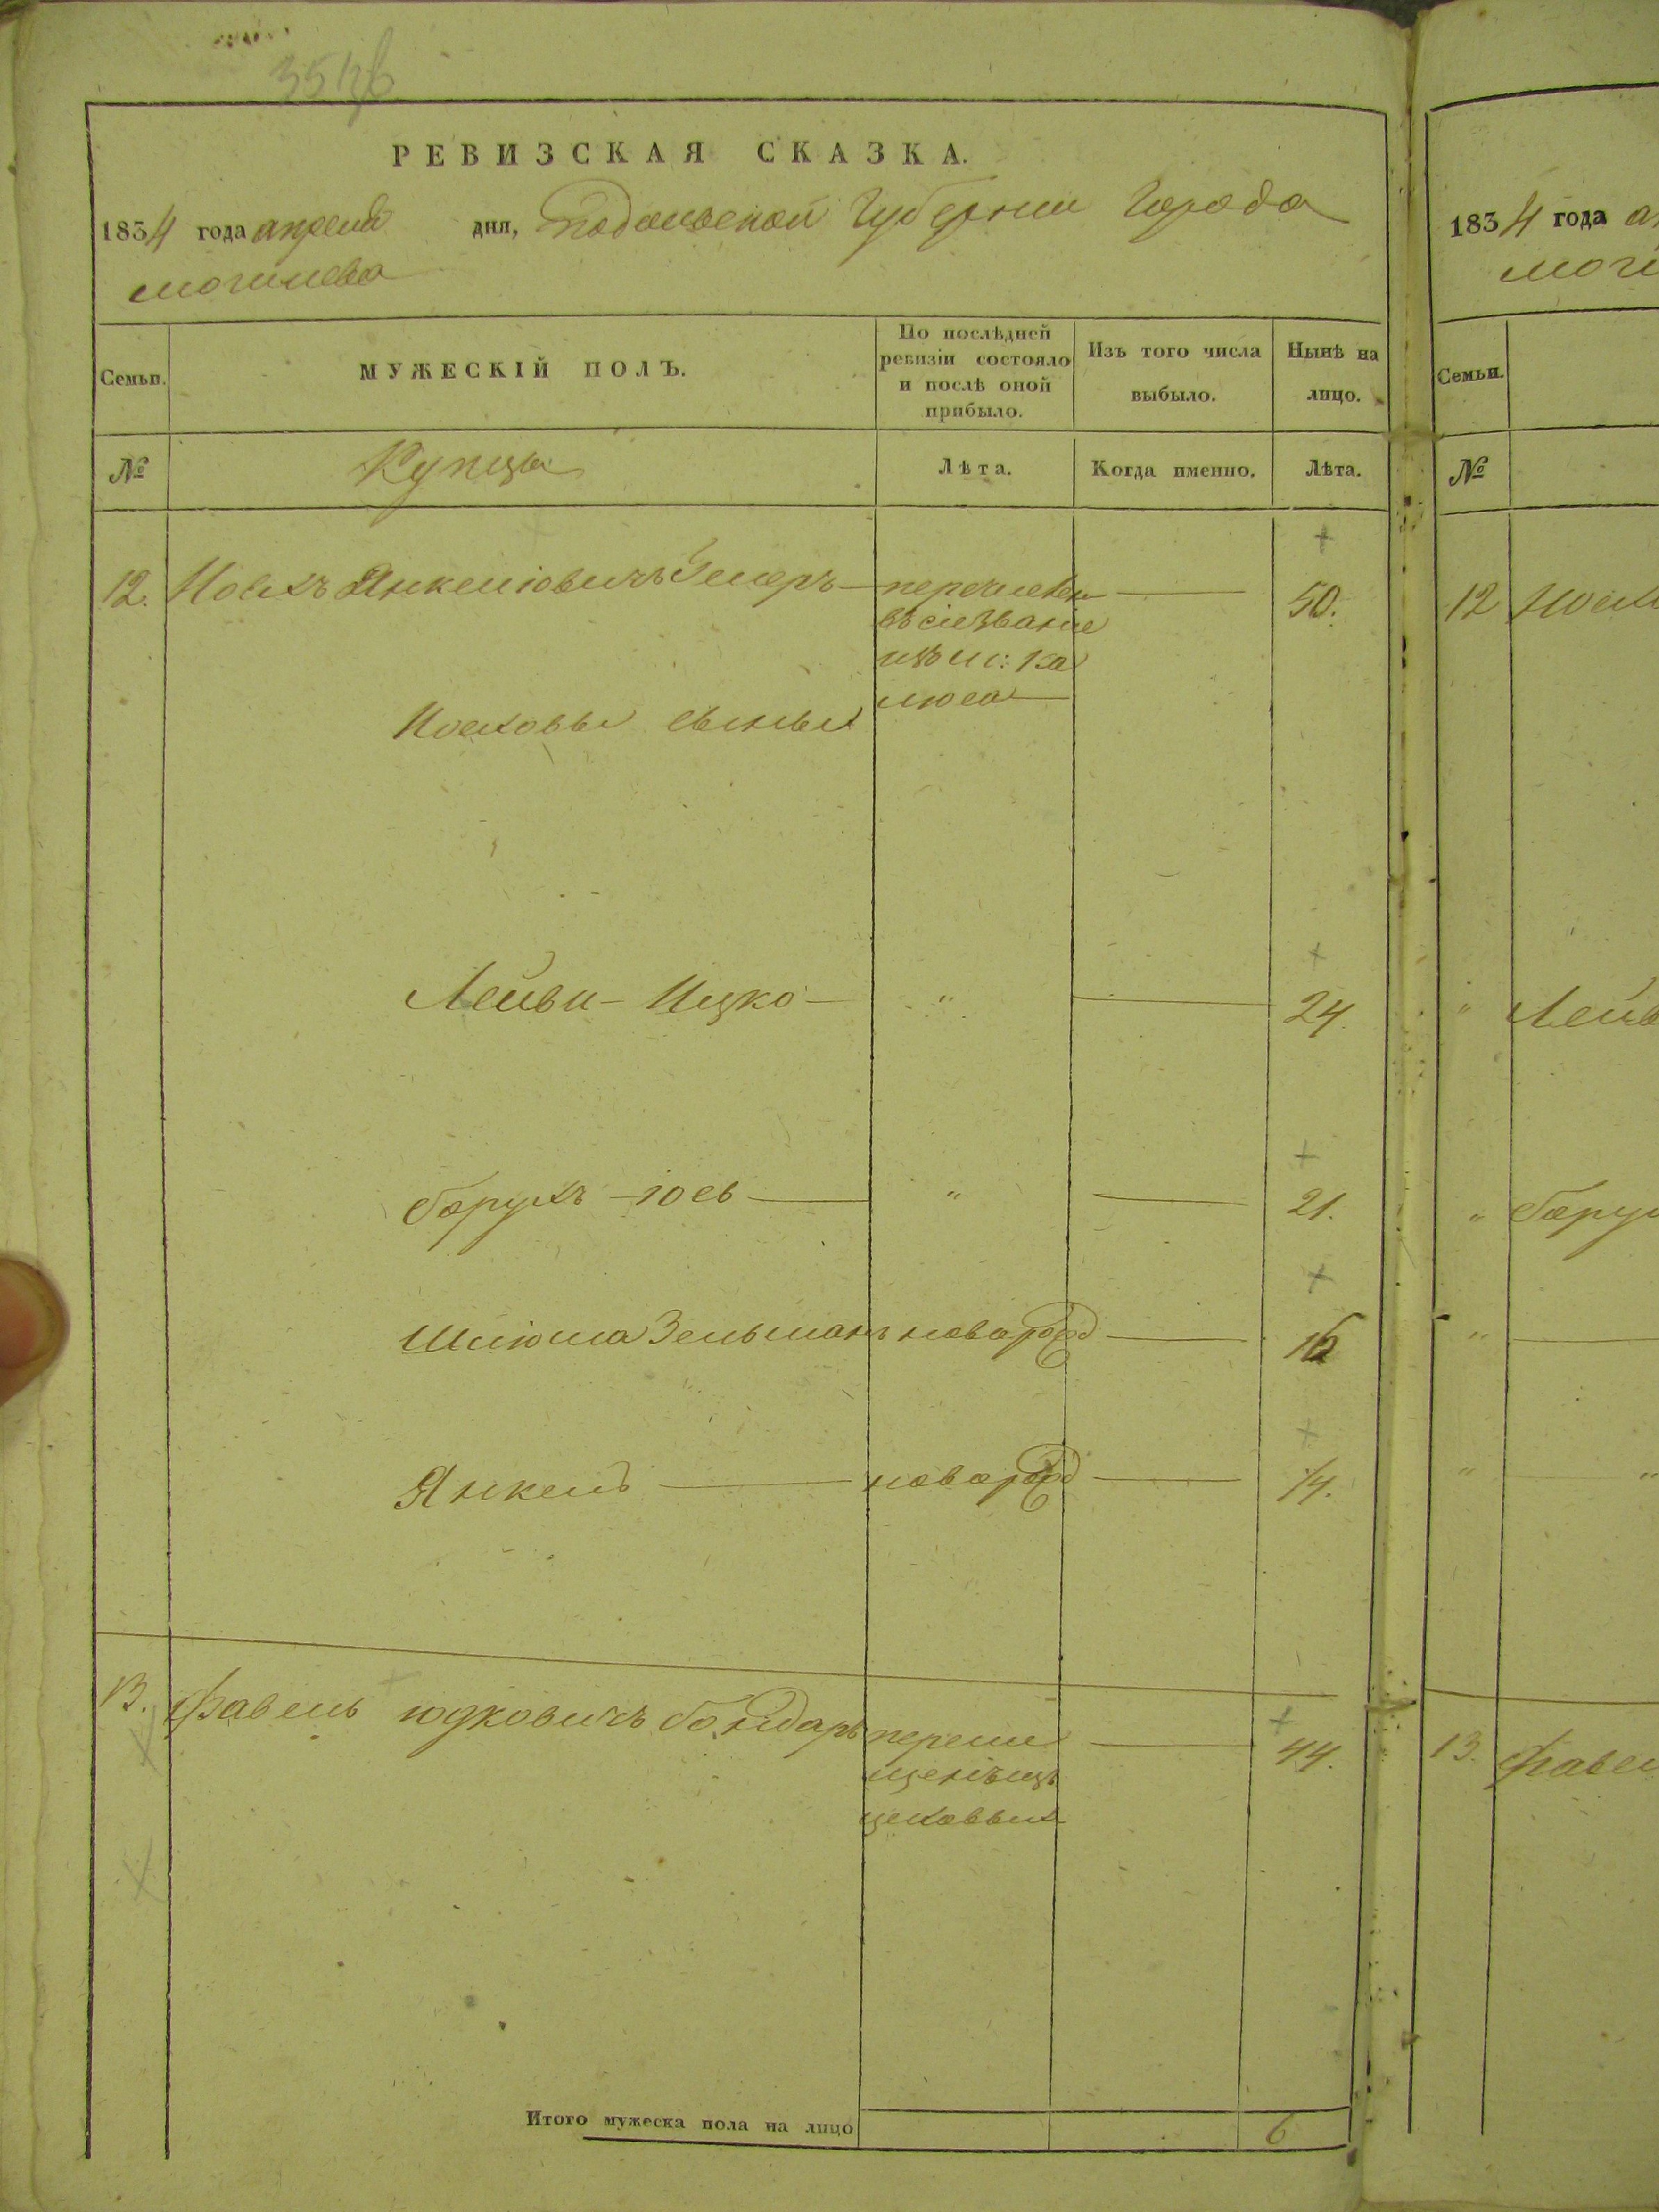 РЕВИЗСКАЯ СКАЗКА.
1834 года апреля дня, Подольской Губернии Города
Могилева
Семьи.
МУЖЕСКІЙ ПОЛЪ.
По послѣдней ревизіи состояло и послѣ оной прибыло.
Изъ того числа выбыло.
Нынѣ на лицо.
№
Купцы
Лѣта.
Когда именно.
Лѣта.
12. Янкеліовичъ
перечислен 50.
въ сіе званіе
Ка
люса
сыны
Лейви - Ицко - " 24.
Барухъ - " 21.
Шліома Зельманъ новорожд 16
Янкель новорожд 14.
13. Фавель Юдковичъ Бондарь
44.
цеховых
Итого мужеска пола на лицо 6
1834 года
Семьи.
№
12
" Лейв
"
"
"
13. Фавел